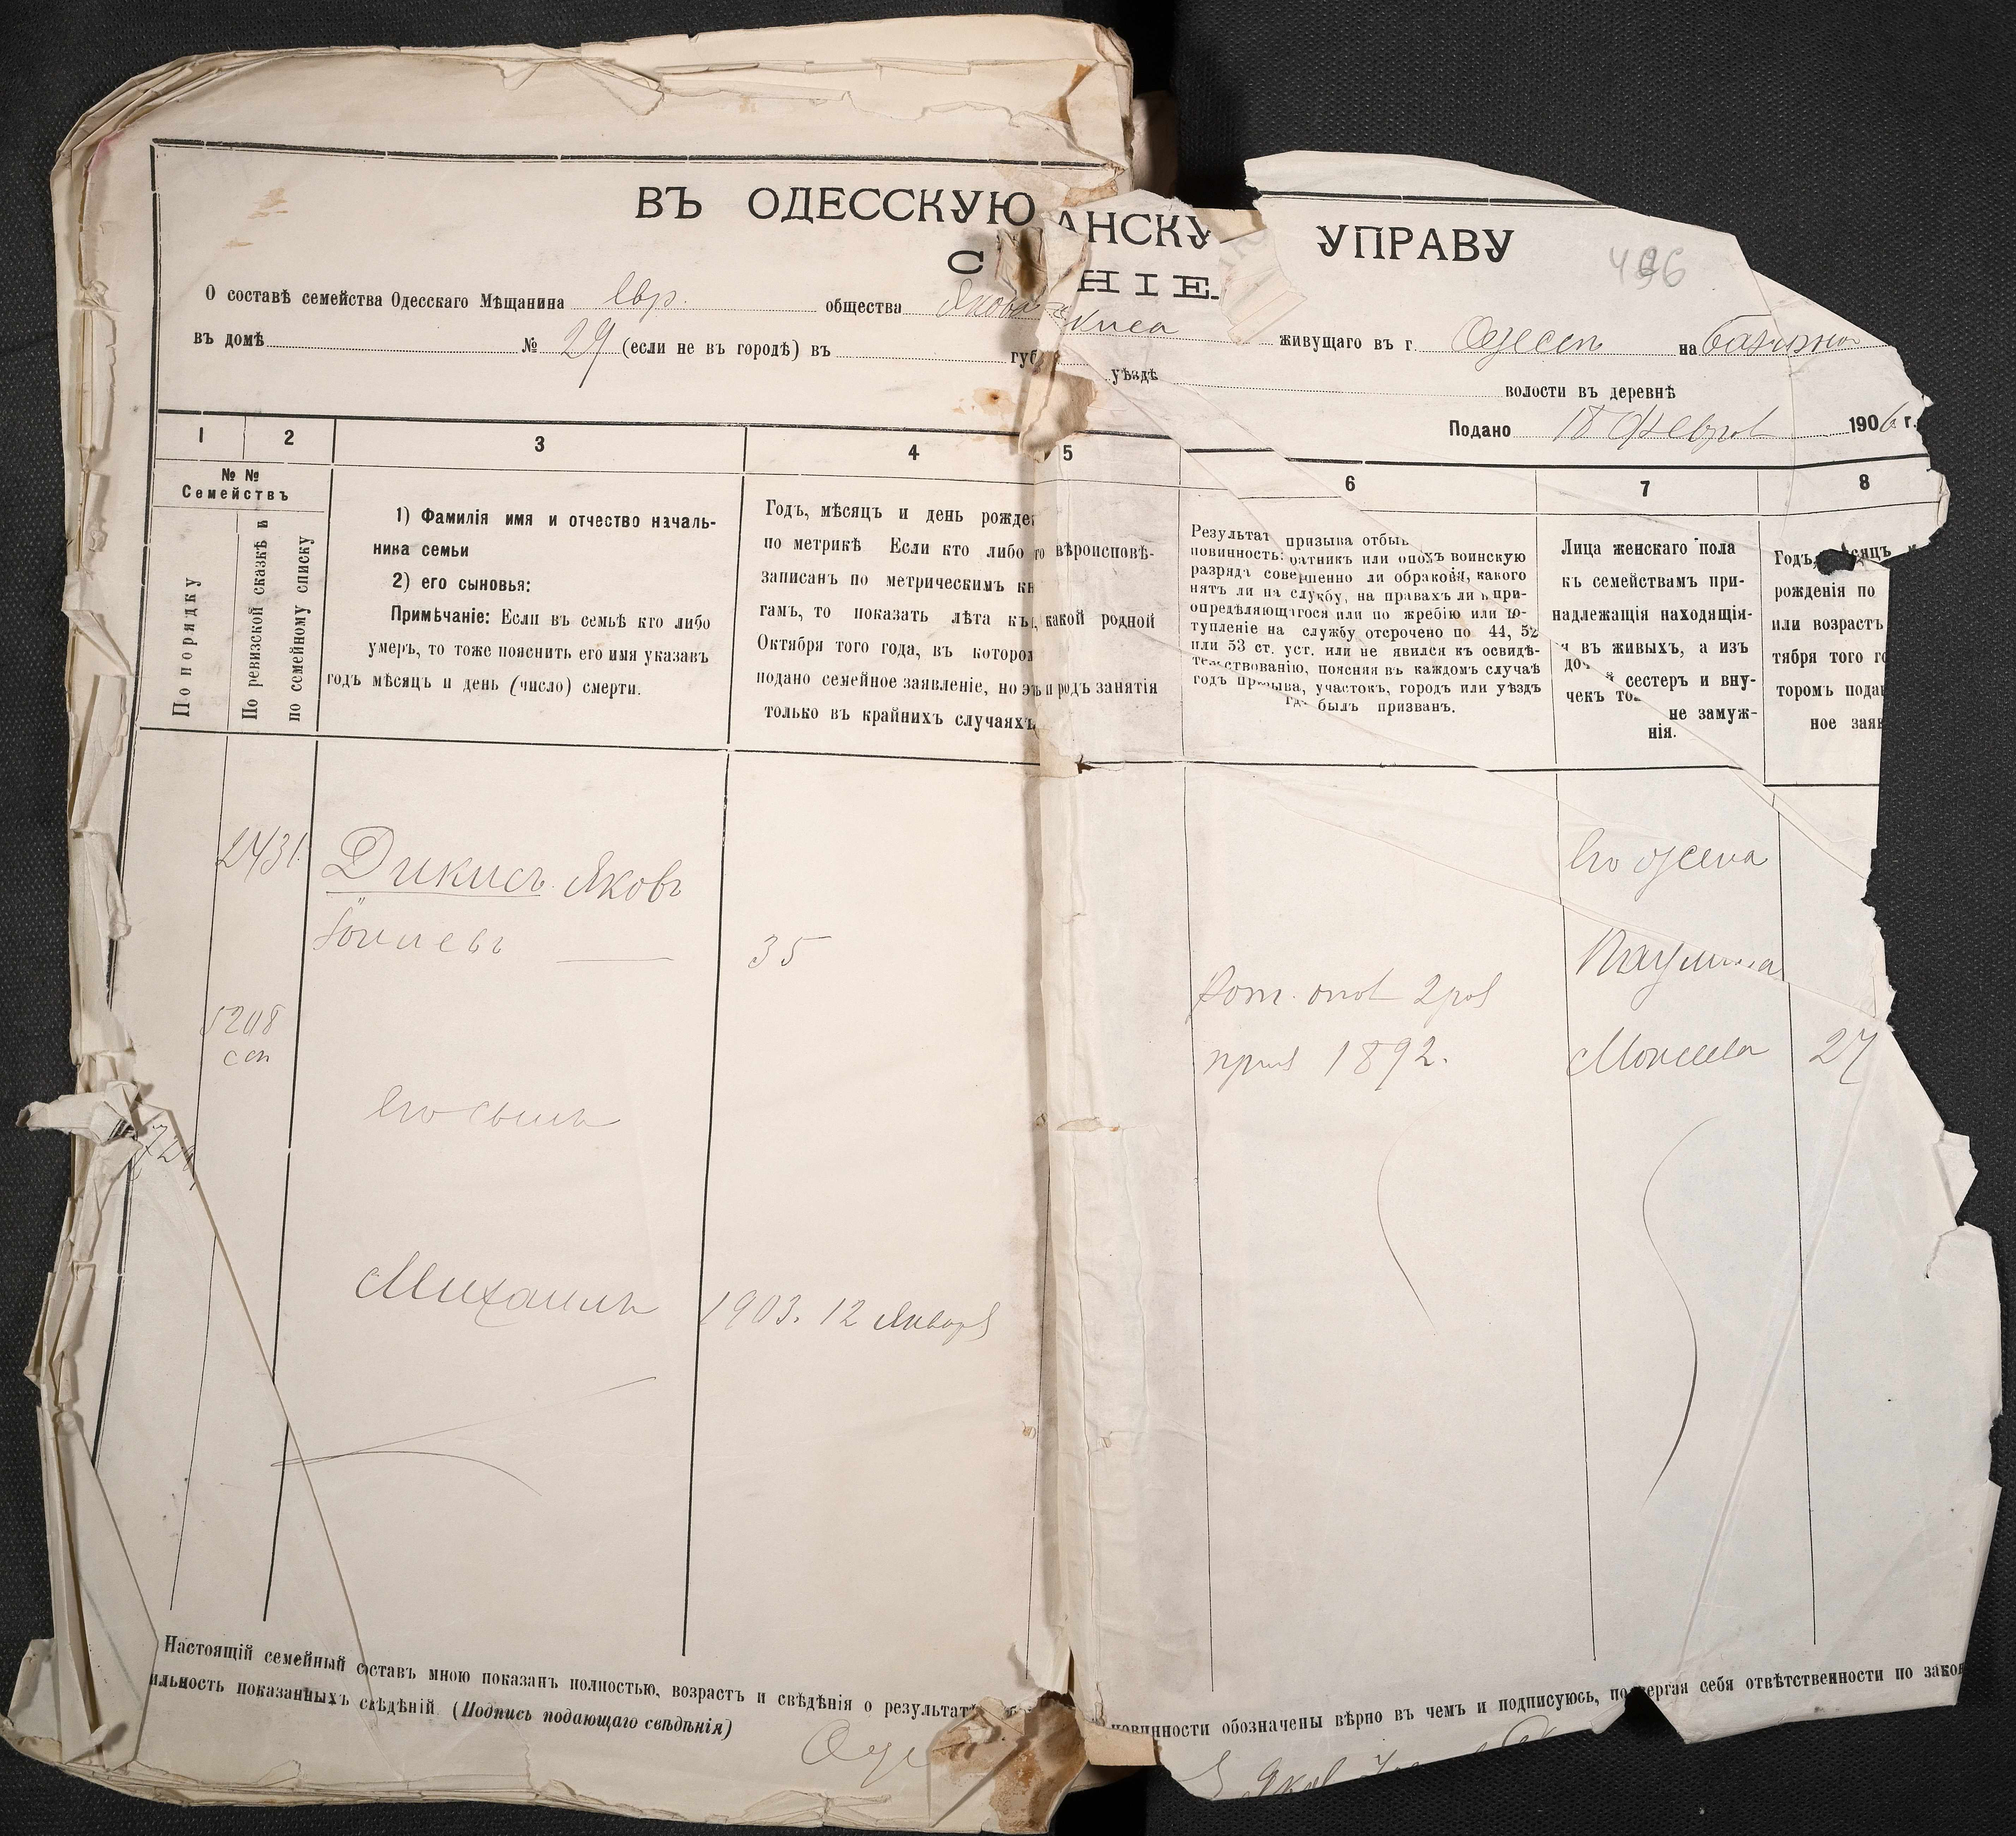 ВЪ ОДЕССКУЮ АНСКУ УПРАВУ
С НІЕ.
496
О составѣ семейства Одесскаго Мѣщанина Евр. общества Якова киса живущаго въ г. Одессѣ на
въ домѣ № 29 (если не въ городѣ) въ губ уѣздѣ волости въ деревнѣ
Подано 18 Феврал 1906 г.
1 2 3 4 5 6 7 8
№ №
Семействъ
По порядку
По ревизской сказкѣ и
по семейному списку
1) Фамилія имя и отчество началь-
ника семьи
2) его сыновья:
Примѣчаніе: Если въ семьѣ кто либо
умеръ, то тоже пояснить его имя указавъ
годъ мѣсяцъ и день (число) смерти.
Годъ, мѣсяцъ и день рожде
по метрикѣ Если кто либо
записанъ по метрическимъ кн
гамъ, то показать лѣта къ
Октября того года, въ которо
подано семейное заявленіе, но э
только въ крайнихъ случаяхъ
го вѣроисповѣ-
какой родной
и родъ занятія
Результат призыва отбы
повинность: ратникъ или опо хъ воинскую
разряда совершенно ли обракова, какого
нятъ ли на службу, на правахъ ли при-
опредѣляющагося или по жребію или по-
тупленіе на службу отсрочено по 44, 52
или 53 ст. уст. или не явился къ освидѣ-
тельствованію, поясняя въ каждомъ случаѣ
годъ призыва, участокъ, городъ или уѣздъ
гдѣ былъ призванъ.
Лица женскаго пола
къ семействамъ при-
надлежащія находящія-
я въ живыхъ, а изъ
доч й сестеръ и вну-
чекъ то не замуж-
нія.
Годъ, мѣсяцъ
рожденія по
или возрастъ
тября того го
торомъ пода
ное зая
2431 Дикисъ Яковъ Его жена
35 Паулина
5208 Рат. опол 2 раз
сп приз 1892. Моисеева 27
Его сынъ
Михаилъ 1903. 12 Январ
Настоящій семейный составъ мною показанъ полностью, возрастъ и свѣдѣнія о результат повинности обозначены вѣрно въ чемъ и подписуюсь, подвергая себя отвѣтственности по закон
ильность показанныхъ свѣдѣній (Подпись подающаго свѣдѣнія)
Оде Яков